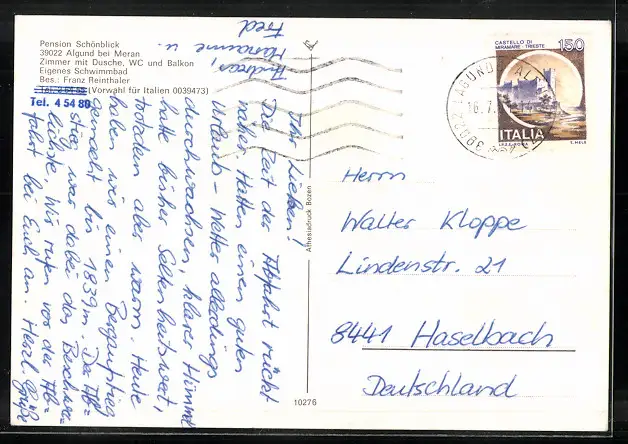 Pension Schönblick
39022 Algund bei Meran
Zimmer mit Dusche, WC und Balkon
Eigenes Schwimmbad
Bes.: Franz Reinthaler
(Vorwahl für Italien 0039473)
Tel. 4 54 80
Ihr Lieben!
Die Zeit der Abfahrt rückt
näher. Hatten einen guten
Urlaub - Wetter allerdings
durchwachsen, klarer Himmel
hatte bisher Seltenheitswert,
trotzdem aber warm. Heute
haben wir einen Bergaufstieg
gemacht bis 1839 m. Der Ab-
stieg war dabei das Beschwer-
lichste. Wir rufen vor der Ab-
fahrt bei Euch an. Herzl. Grüße
Andreas,
Marianne u.
Fred
Athesiadruck Bozen
10276
CASTELLO DI
MIRAMARE - TRIESTE
150
ITALIA
I.P.Z.S. ROMA
39022 LAGUNDO
16.7.
Herrn
Walter Kloppe
Lindenstr. 21
8441 Haselbach
Deutschland